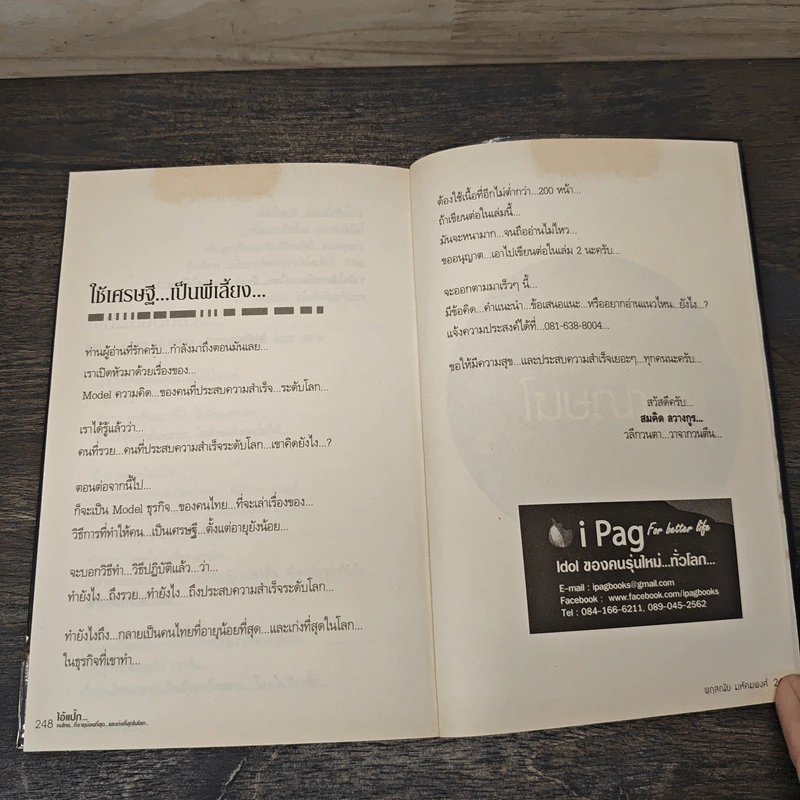 ใช้เศรษฐี...เป็นพี่เลี้ยง...
ท่านผู้อ่านที่รักครับ...กำลังมาถึงตอนมันเลย...
เราเปิดหัวมาด้วยเรื่องของ...
Model ความคิด...ของคนที่ประสบความสำเร็จ...ระดับโลก...
เราได้รู้แล้วว่า...
คนที่รวย...คนที่ประสบความสำเร็จระดับโลก...เขาคิดยังไง...?
ตอนต่อจากนี้ไป...
ก็จะเป็น Model ธุรกิจ...ของคนไทย...ที่จะเล่าเรื่องของ...
วิธีการที่ทำให้คน...เป็นเศรษฐี...ตั้งแต่อายุยังน้อย...
จะบอกวิธีทำ...วิธีปฏิบัติแล้ว...ว่า...
ทำยังไง...ถึงรวย...ทำยังไง...ถึงประสบความสำเร็จระดับโลก...
ทำยังไงถึง...กลายเป็นคนไทยที่อายุน้อยที่สุด...และเก่งที่สุดในโลก...
ในธุรกิจที่เขาทำ...
248 ไอ้แป๊ก...
คนไทย...ที่อายุน้อยที่สุด...และเก่งที่สุดในโลก...
ต้องใช้เนื้อที่อีกไม่ต่ำกว่า...200 หน้า...
ถ้าเขียนต่อในเล่มนี้...
มันจะหนามาก...จนถืออ่านไม่ไหว...
ขออนุญาต...เอาไปเขียนต่อในเล่ม 2 นะครับ...
จะออกตามมาเร็วๆ นี้...
มีข้อคิด...คำแนะนำ...ข้อเสนอแนะ...หรืออยากอ่านแนวไหน...ยังไง...?
แจ้งความประสงค์ได้ที่...081-638-8004...
ขอให้มีความสุข...และประสบความสำเร็จเยอะๆ...ทุกคนนะครับ...
สวัสดีครับ...
สมคิด ลวางกูร...
วลีกวนตา...วาจากวนตีน...
i Pag For better life
Idol ของคนรุ่นใหม่...ทั่วโลก...
E-mail : ipagbooks@gmail.com
Facebook : www.facebook.com/ipagbooks
Tel : 084-166-6211, 089-045-2562